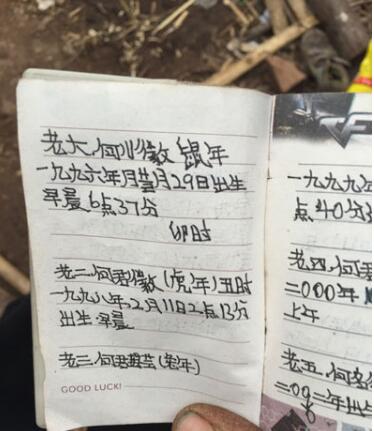 老大.何川徽 鼠年
一九九六年月廿月29日出生
早晨6点37分
卯时
老二.何君徽(虎年)丑时
一九九八年2月11日2点13分
出生 早晨
老三.何君
GOOD LUCK!
一九九九年
点40分
老四.何君
二000年
上午
老五.何
二0